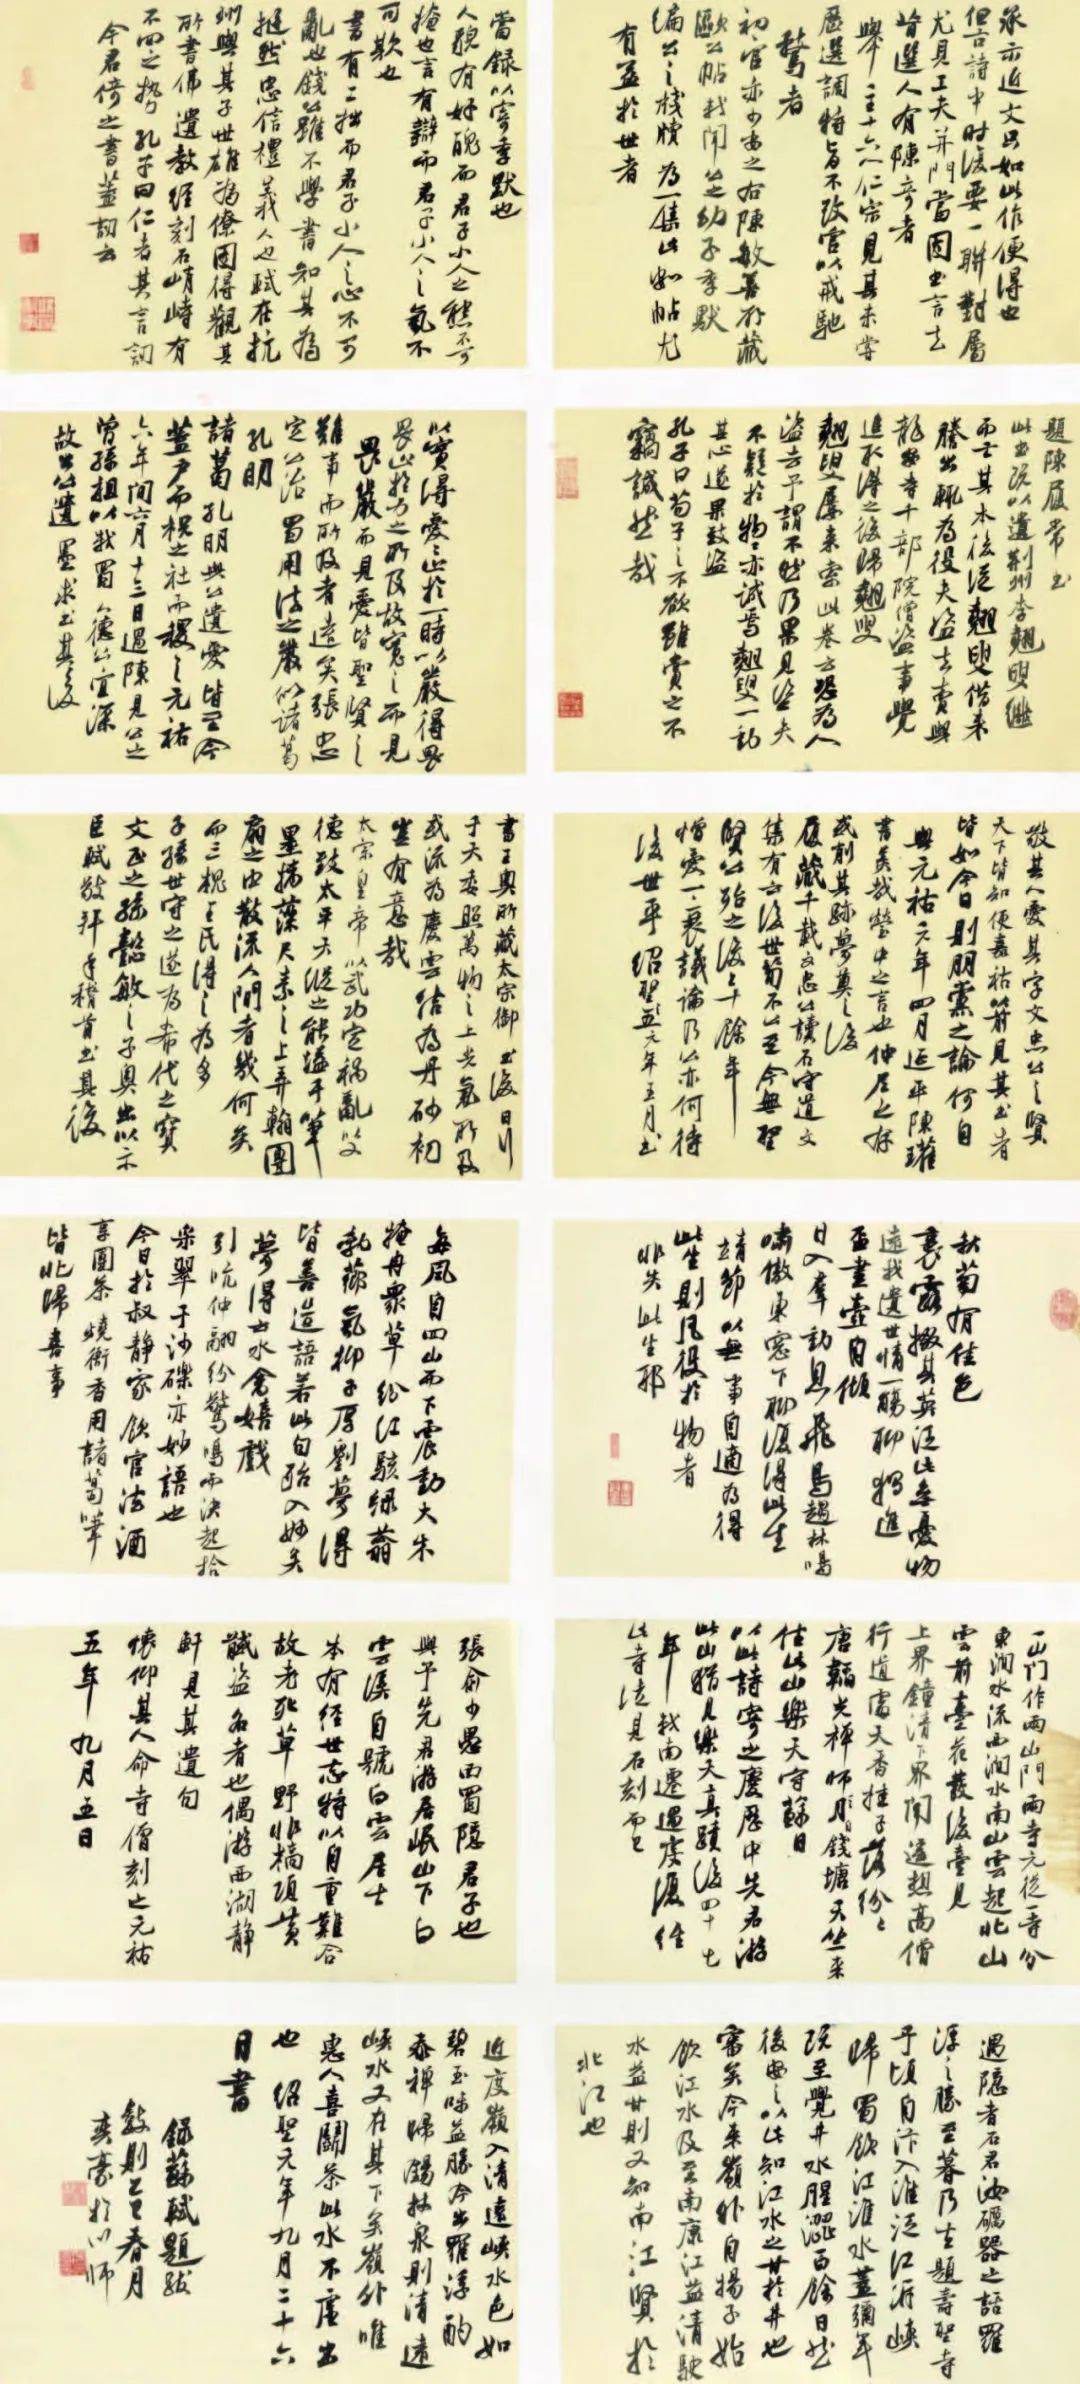 承示近文只如此作便得也
但古詩中时復要一聯對屬
尤見工夫并門當國書言去
皆選人有陳奇者
舉主十六人仁宗見其未嘗
歷選調特旨不改官以戒馳
騖者
初官亦少安之右陳敏善所藏
歐公帖我聞公之幼子季默
編公之牋牘为一集此如帖尤
有益於世者
當録以寄季默也
人貌有好醜而君子小人之態不可
掩也言有辯而君子小人之氣不
可欺也
書有工拙而君子小人之心不可
亂也錢公雖不學書知其為
挺然忠信禮義人也軾在杭
州與其子世雄為僚因得觀其
所書佛遺教經刻石峭峙有
不回之勢孔子曰仁者其言訒
今君倚之書蓋訒云
題陳履常書
此書既以遺荆州李翹叟繼
而亡其本後從翹叟借来
謄出輒為役夫盜去賣與
龍安寺千部院僧盜事覺
追取得之復歸翹叟
翹叟屢来索此卷云恐為人
盜去予謂不然乃果見盜夫
不疑於物物亦誠焉翹叟一動
其心遂果致盜
孔子曰苟子之不欲雖賞之不
竊誠然哉
以寬得愛愛止於一時以嚴得畏
畏止於力之所及故寬之而見
畏嚴而見愛皆聖賢之
難事而所及者遠矣張忠
定公治蜀用法之嚴似諸葛
孔明
諸葛孔明與公遺愛皆至今
蓋尸而祝之社而稷之元祐
六年閏六月十三日過陳見公之
曾孫祖以我蜀人德公宜深
故出公遺墨求書其後
敬其人愛其字文忠公之賢
天下皆知使嘉祐以前見其書者
皆如今日則朋黨之論何自
興元祐元年四月延平陳瓘
書美哉瑩中之言也仲尼之存
或削其跡夢奠之後
履藏千載文忠公讀石守道文
集有云後世苟不公至今無聖
賢公殆之後二十餘年
憎愛一衰議論乃公亦何待
後世乎紹聖元年五月書
書王奧所藏太宗御書後日行
于天委照萬物之上光氣所及
或流為慶雲結為丹砂初
豈有意哉
太宗皇帝以武功定禍亂以文
德致太平天縱之能溢于筆
墨摛藻尺素之上弄翰團
扇之中散流人間者幾何矣
而三槐王氏得之為多
子孫世守之遂為希代之寶
文正之孫懿敏之子奧出以示
臣軾敬拜手稽首書其後
秋菊有佳色
裛露掇其英泛此忘憂物
遠我遺世情一觴聊獨進
盃盡壺自傾
日入羣動息飛鳥趨林鳴
嘯傲東窓下聊復得此生
靖節以無事自適為得
此生則凡役於物者
非失此生耶
每風自四山而下震動大木
掩冉衆草紛红駭绿蓊
勃薌氣柳子厚劉夢得
皆善造語若此句殆入妙矣
夢得云水禽嬉戲
引吭伸翮紛驚鳴而決起拾
采翠于沙礫亦妙語也
今日於叔静家飲官法酒
烹團茶燒衙香用諸葛筆
皆北歸喜事
一山门作兩山門兩寺元從一寺分
東澗水流西澗水南山雲起北山
雲前臺花發後臺見
上界鐘清下界聞遥想高僧
行道處天香桂子落纷纷
唐韜光禪師自錢塘天竺来
住此山樂天守蘇日
以此詩寄之慶歷中先君游
此山猶見樂天真蹟後四十七
年軾南遷過虔復經
此寺徒見石刻而已
張俞少愚西蜀隱君子也
與予先君游居岷山下白
雲溪自號白雲居士
本有經世志特以自重難合
故老死草野非槁項黃
馘盜名者也偶游西湖静
軒見其遺句
懷仰其人命寺僧刻之元祐
五年九月五日
遇隱者石君汝礪器之話羅
浮之勝至暮乃去題壽聖寺
予頃自汴入淮泛江泝峽
歸蜀飲江淮水蓋彌年
既至覺井水腥澀百餘日然
後安之以此知江水之甘於井也
審矣今来嶺外自揚子始
飲江水及至南康江益清駛
水益甘則又知南江賢於
北江也
近度嶺入清遠峽水色如
碧玉味益勝今出羅浮酌
泰禪師錫杖泉則清遠
峽水又在其下矣嶺外唯
惠人喜鬬茶此水不虛出
也紹聖元年九月二十六
日書
録蘇軾題跋
數則乙巳春月
奕豪於川師